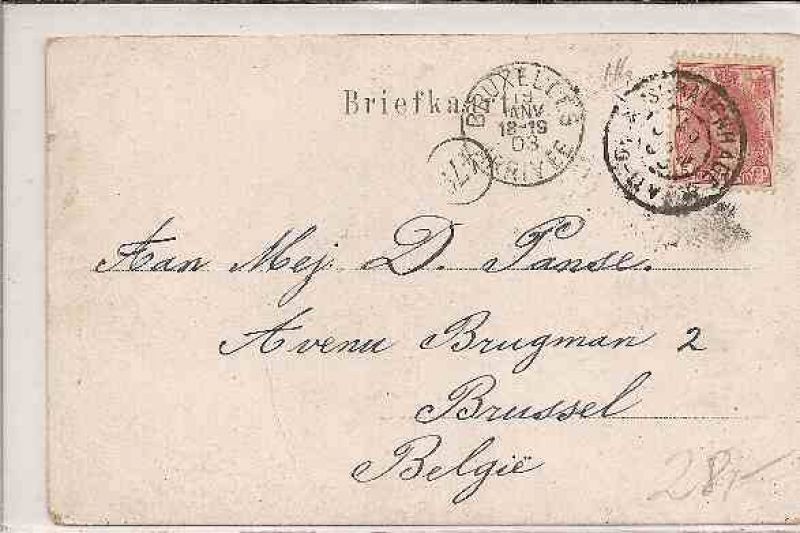 Briefkaart
BRUXELLES
19
JANV
18-19
03
ARRIVEE
Aan Mej D. Panse.
Avenu Brugman 2
Brussel
België
28,-